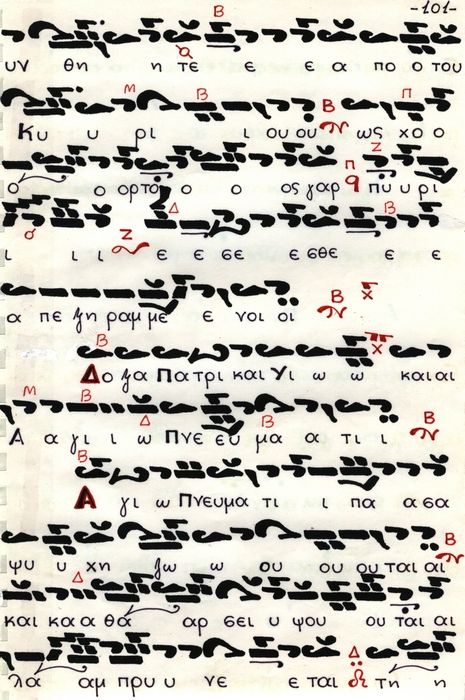 -101-
υν θη η τε ε ε α πο ο του
Κυ υ ρι ι ου ου ως χο ο
ο ορτο ο ο ος γαρ πυ υ ρι
ι ι ι ε ε σε ε σθε ε ε
α πε ξη ραμ με ε νοι οι
Δο ξα Πατρι και Υι ω ω και αι
Α α γι ι ω Πνε ευ μα α τι ι
Α γι ω Πνευμα τι ι πα ασα
ψυ υ χη ζω ω ου ου ου ται αι
και κα α θα αρ σει υ ψου ου ται αι
λα αμ πρυ υ νε ε ται τη η